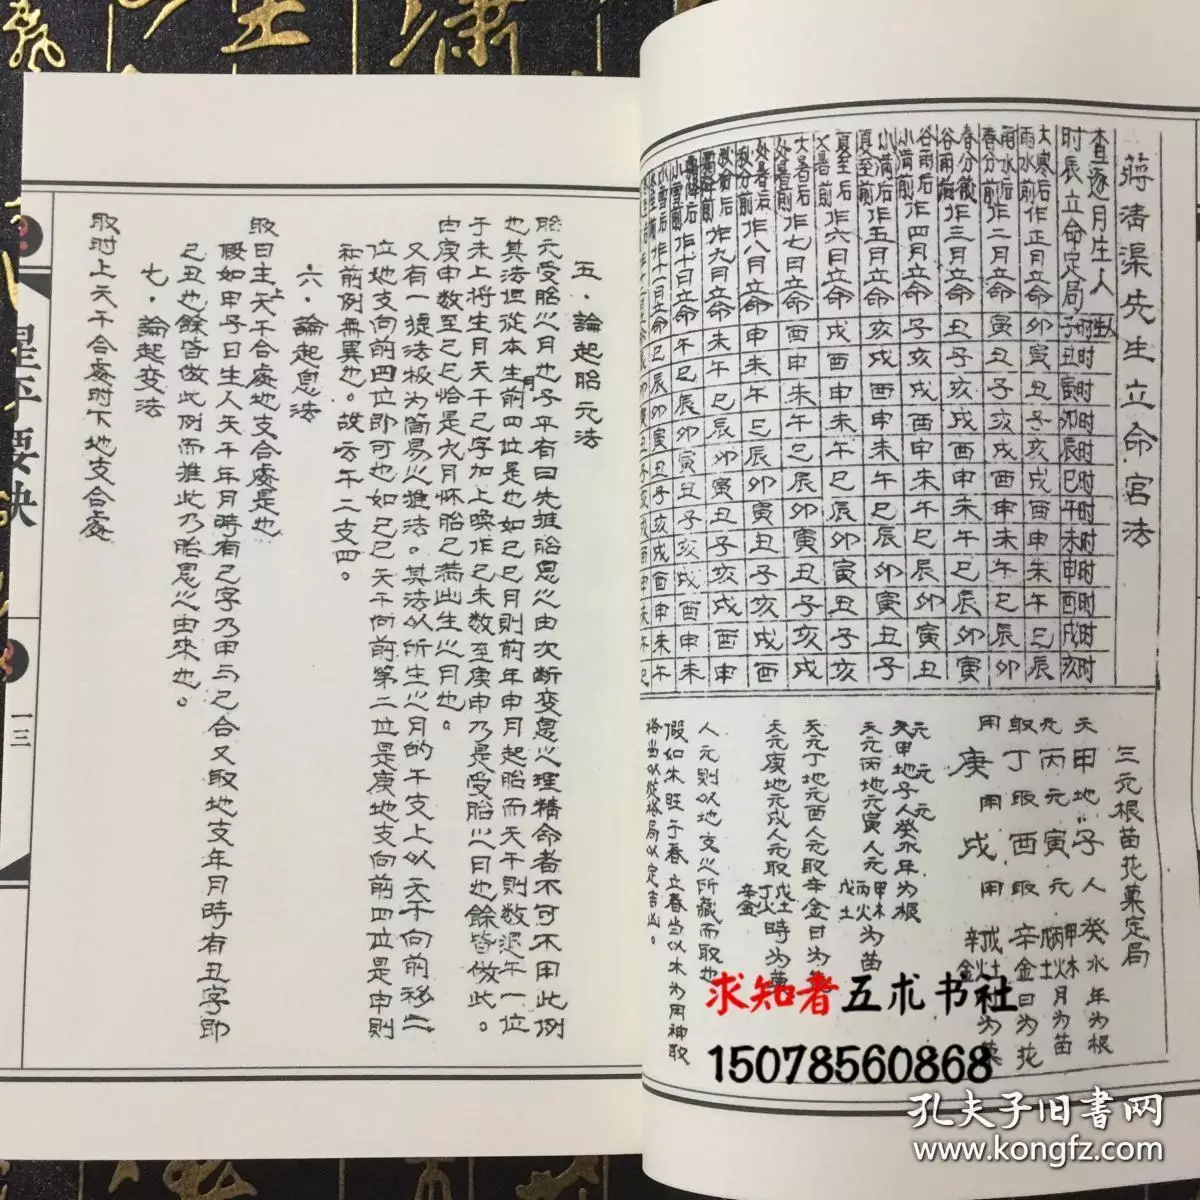 蔣清渠先生立命宮法
查逐月生人
时辰立命定局
生人
子时
丑时
寅时
卯时
辰时
巳时
午时
未时
申时
酉时
戌时
亥时
大寒后
雨水前
作正月立命
卯寅丑子亥戌酉申未午巳辰
雨水后
春分前
作二月立命
寅丑子亥戌酉申未午巳辰卯
春分后
谷雨前
作三月立命
丑子亥戌酉申未午巳辰卯寅
谷雨后
小满前
作四月立命
子亥戌酉申未午巳辰卯寅丑
小满后
夏至前
作五月立命
亥戌酉申未午巳辰卯寅丑子
夏至后
大暑前
作六日立命
戌酉申未午巳辰卯寅丑子亥
大暑后
处暑前
作七日立命
酉申未午巳辰卯寅丑子亥戌
处暑后
秋分前
作八月立命
申未午巳辰卯寅丑子亥戌酉
秋分后
霜降前
作九月立命
未午巳辰卯寅丑子亥戌酉申
霜降后
小雪前
作十日立命
午巳辰卯寅丑子亥戌酉申未
小雪后
作十一月立命
巳辰卯寅丑子亥戌酉申未午
三元根苗花菓定局
天甲地子人癸水年为根
元丙元寅元甲木丙火戊土月为苗
取丁取酉取辛金日为花
用庚用戌用戊土丁火辛金时为菓
元元元
天甲地子人癸水年为根
天元丙地元寅人元甲木丙火戊土为苗
天元丁地元酉人元取辛金日为花
天元庚地元戌人元取戊土丁火辛金時为菓
人元則以地支之所藏而取也
假如木旺于春立春当以木为用神取
格当以從格局以定吉凶。
五·論起胎元法
胎元受胎之月也子平有曰先推胎息之由次断变息之理精命者不可不用此例
也其法但從本生月前四位是也如己巳月則前年申月起胎而天干則数退午一位
于未上将生月天干己字加上喚作己未数至庚申乃是受胎之日也餘皆倣此。
由庚申数至己巳恰是九月怀胎己满此生之月也。
又有一捷法极为简易之推法。其法以所生之月的干支上以天干向前移二
位地支向前四位即可也如己巳天干向前第二位是庚地支向前四位是申則
和前例無異也。故云午二支四。
六·論起息法
取日主上天干合處地支合處是也
假如甲子日生人天干年月時有己字乃甲与己合又取地支年月時有丑字即
己丑也餘皆倣此例而推此乃胎息之由來也。
七·論起变法
取时上天干合處时下地支合處
星平要訣
一三
求知者五术书社
15078560868
孔夫子旧书网
www.kongfz.com